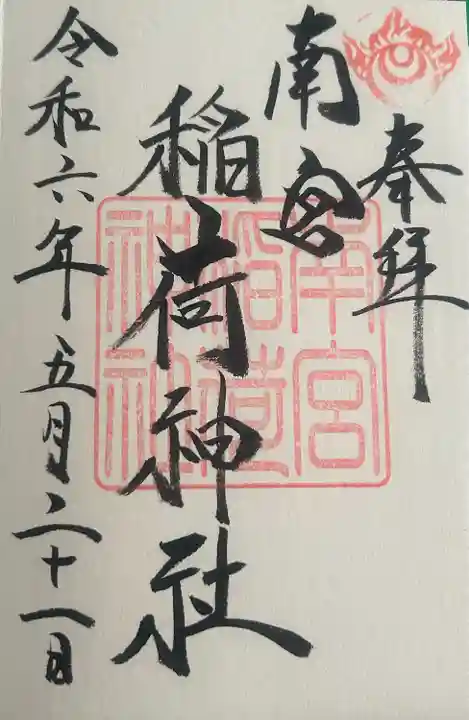 奉拝
南宮
稲荷神社
南宮
稲荷
神社
令和六年五月二十一日